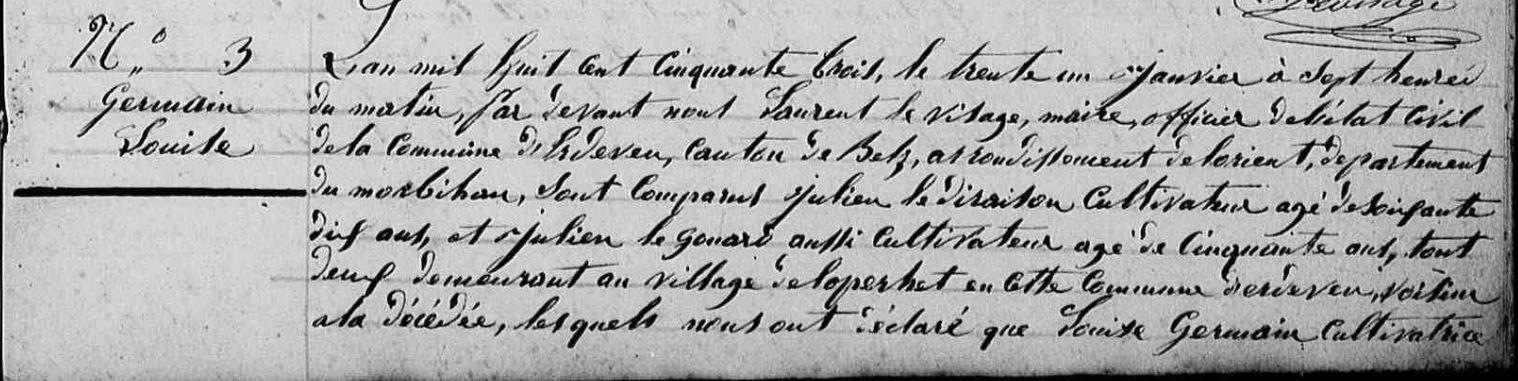 N° 3
Germain
Louise
L'an mil huit cent cinquante trois, le trente un janvier à sept heures
du matin, par devant nous Laurent le visage, maire, officier de l'état civil
de la Commune d'Erdeven, canton de Belz, arrondissement de lorient, département
du morbihan, sont comparus julien le diraison cultivateur agé de soixante
dix ans, et julien le gouard aussi cultivateur agé de cinquante ans, tout
deux demeurant au village de loperhet en cette commune d'erdeven, voisins
a la décédée, lesquels nous ont déclaré que Louise Germain cultivatrice